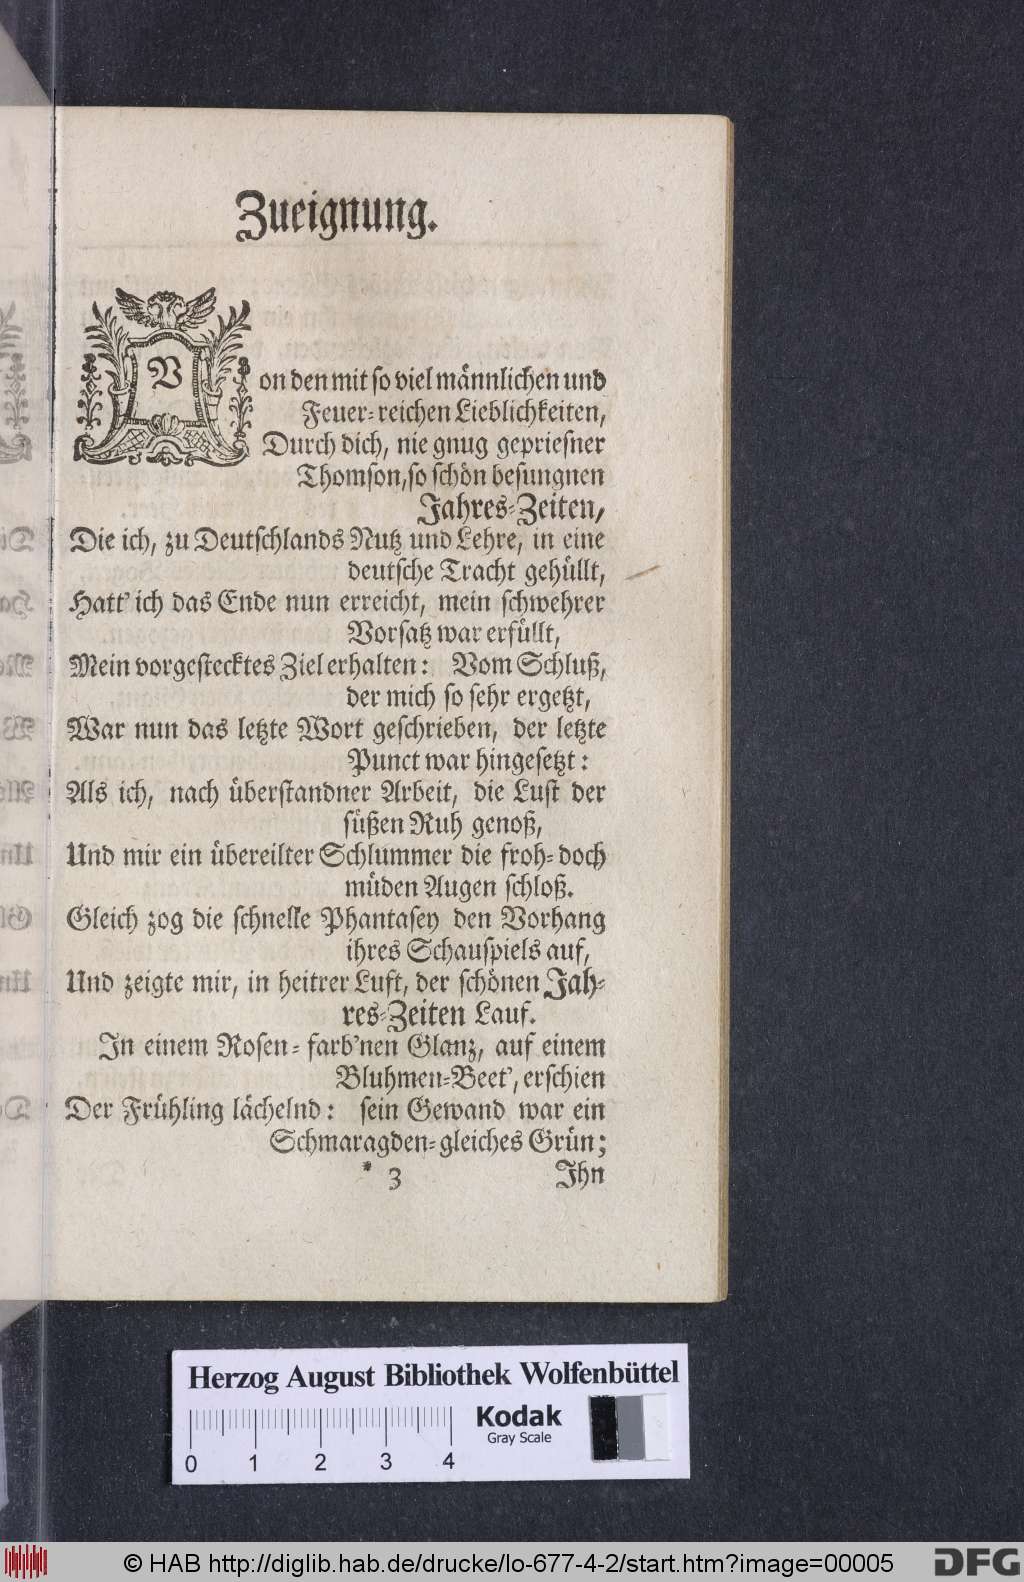 Zueignung.
Von den mit so viel männlichen und
Feuer-reichen Lieblichkeiten,
Durch dich, nie gnug gepriesner
Thomson, so schön besungnen
Jahres-Zeiten,
Die ich, zu Deutschlands Nutz und Lehre, in eine
deutsche Tracht gehüllt,
Hatt' ich das Ende nun erreicht, mein schwehrer
Vorsatz war erfüllt,
Mein vorgestecktes Ziel erhalten: Vom Schluß,
der mich so sehr ergetzt,
War nun das letzte Wort geschrieben, der letzte
Punct war hingesetzt:
Als ich, nach überstandner Arbeit, die Lust der
süßen Ruh genoß,
Und mir ein übereilter Schlummer die froh-doch
müden Augen schloß.
Gleich zog die schnelle Phantasey den Vorhang
ihres Schauspiels auf,
Und zeigte mir, in heitrer Luft, der schönen Jah-
res-Zeiten Lauf.
In einem Rosen-farb'nen Glanz, auf einem
Bluhmen-Beet', erschien
Der Frühling lächelnd: sein Gewand war ein
Schmaragden-gleiches Grün;
* 3 Ihn
Herzog August Bibliothek Wolfenbüttel
Kodak
Gray Scale
0 1 2 3 4
© HAB http://diglib.hab.de/drucke/lo-677-4-2/start.htm?image=00005
DFG